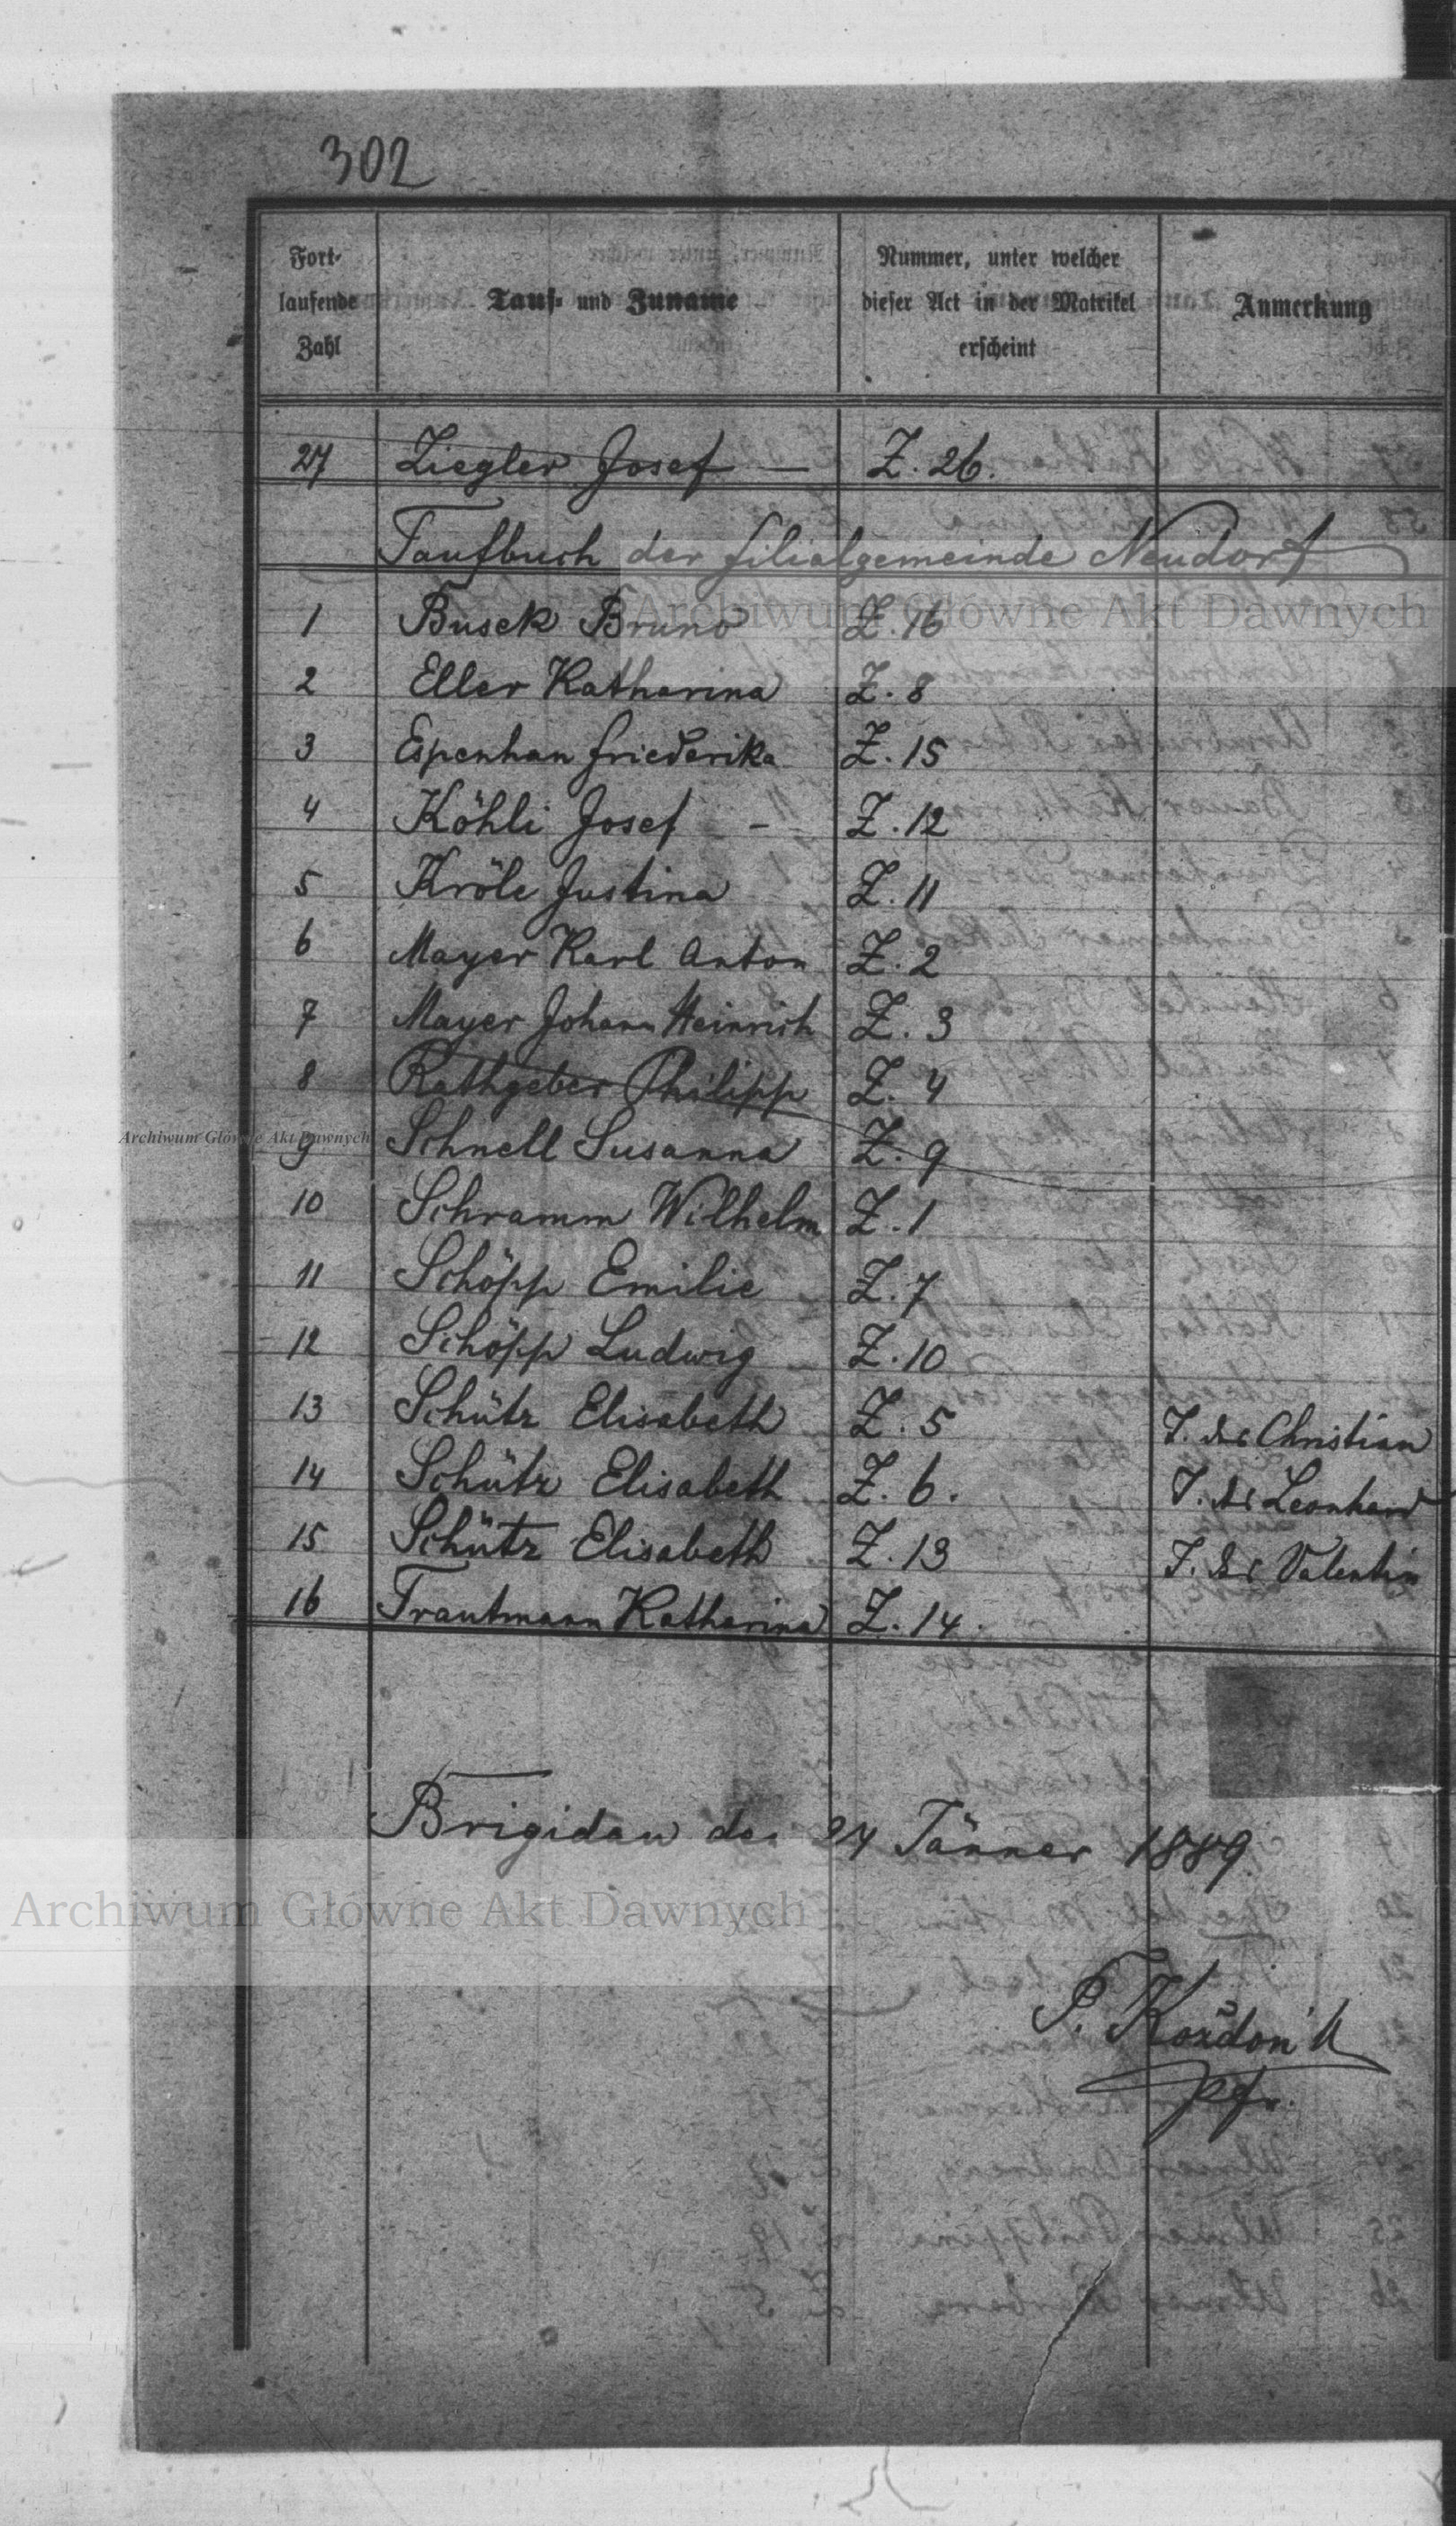 302
Fort-
laufende
Zahl
Tauf- und Zuname
Nummer, unter welcher
dieser Act in der Matrikel
erscheint
Anmerkung
27 Ziegler Josef — Z. 26.
Taufbuch der Filialgemeinde Neudorf
Archiwum Główne Akt Dawnych
1 Busek Bruno Z. 16
2 Eller Katharina Z. 8
3 Espenhan Friederika Z. 15
4 Köhli Josef - Z. 12
5 Kröle Justina Z. 11
6 Mayer Karl Anton Z. 2
7 Mayer Johann Heinrich Z. 3
8 Rathgeber Philipp Z. 4
Archiwum Główne Akt Dawnych
9 Schnell Susanna Z. 9
10 Schramm Wilhelm Z. 1
11 Schöpp Emilie Z. 7
12 Schöpp Ludwig Z. 10
13 Schütz Elisabeth Z. 5 T. des Christian
14 Schütz Elisabeth Z. 6. T. des Leonhard
15 Schütz Elisabeth Z. 13 T. des Valentin
16 Trautmann Katharina Z. 14.
Brigidau den 24 Jänner 1889
Archiwum Główne Akt Dawnych
P. Kozdon
Pfr.